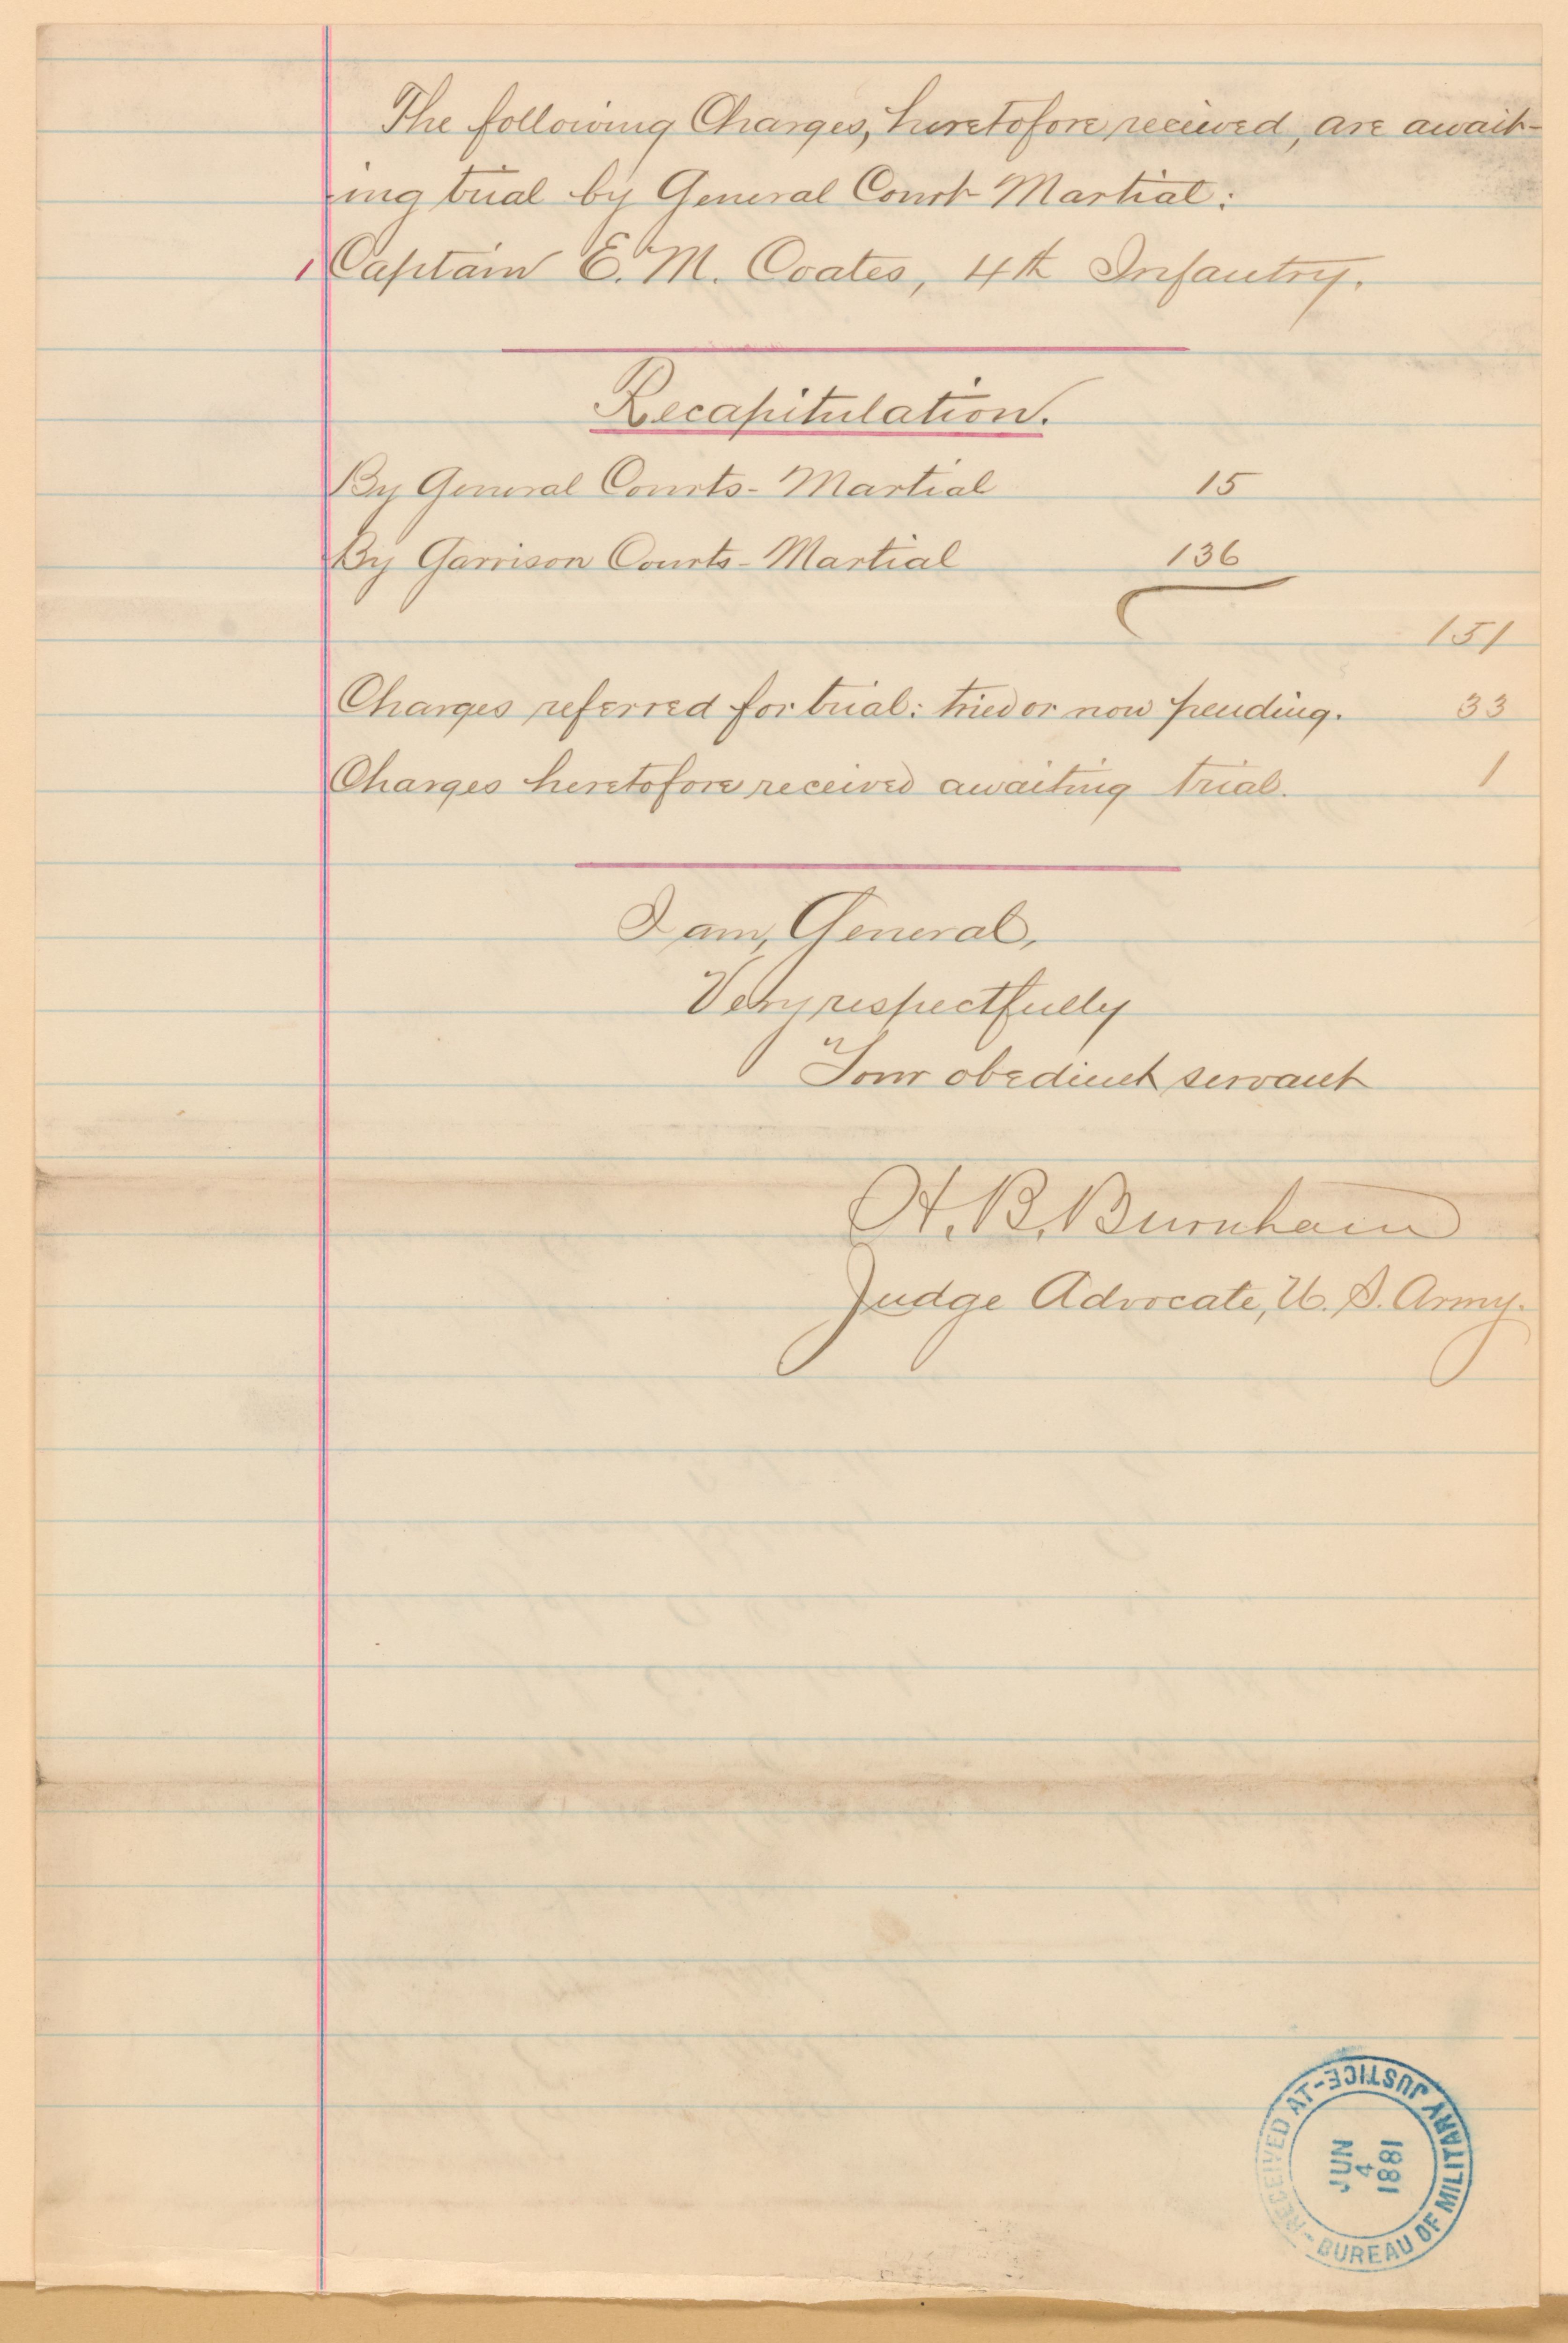 The following Charges, heretofore received, are await-
ing trial by General Court-Martial:
1 Captain E. M. Coates, 4th Infantry.
Recapitulation.
By General Courts-Martial 15
By Garrison Courts-Martial 136
151
Charges referred for trial: tried or now pending. 33
Charges heretofore received awaiting trial. 1
I am, General,
Very respectfully
Your obedient servant
H. B. Burnham
Judge Advocate, U. S. Army.
-RECEIVED AT- BUREAU OF MILITARY JUSTICE
JUN
4
1881